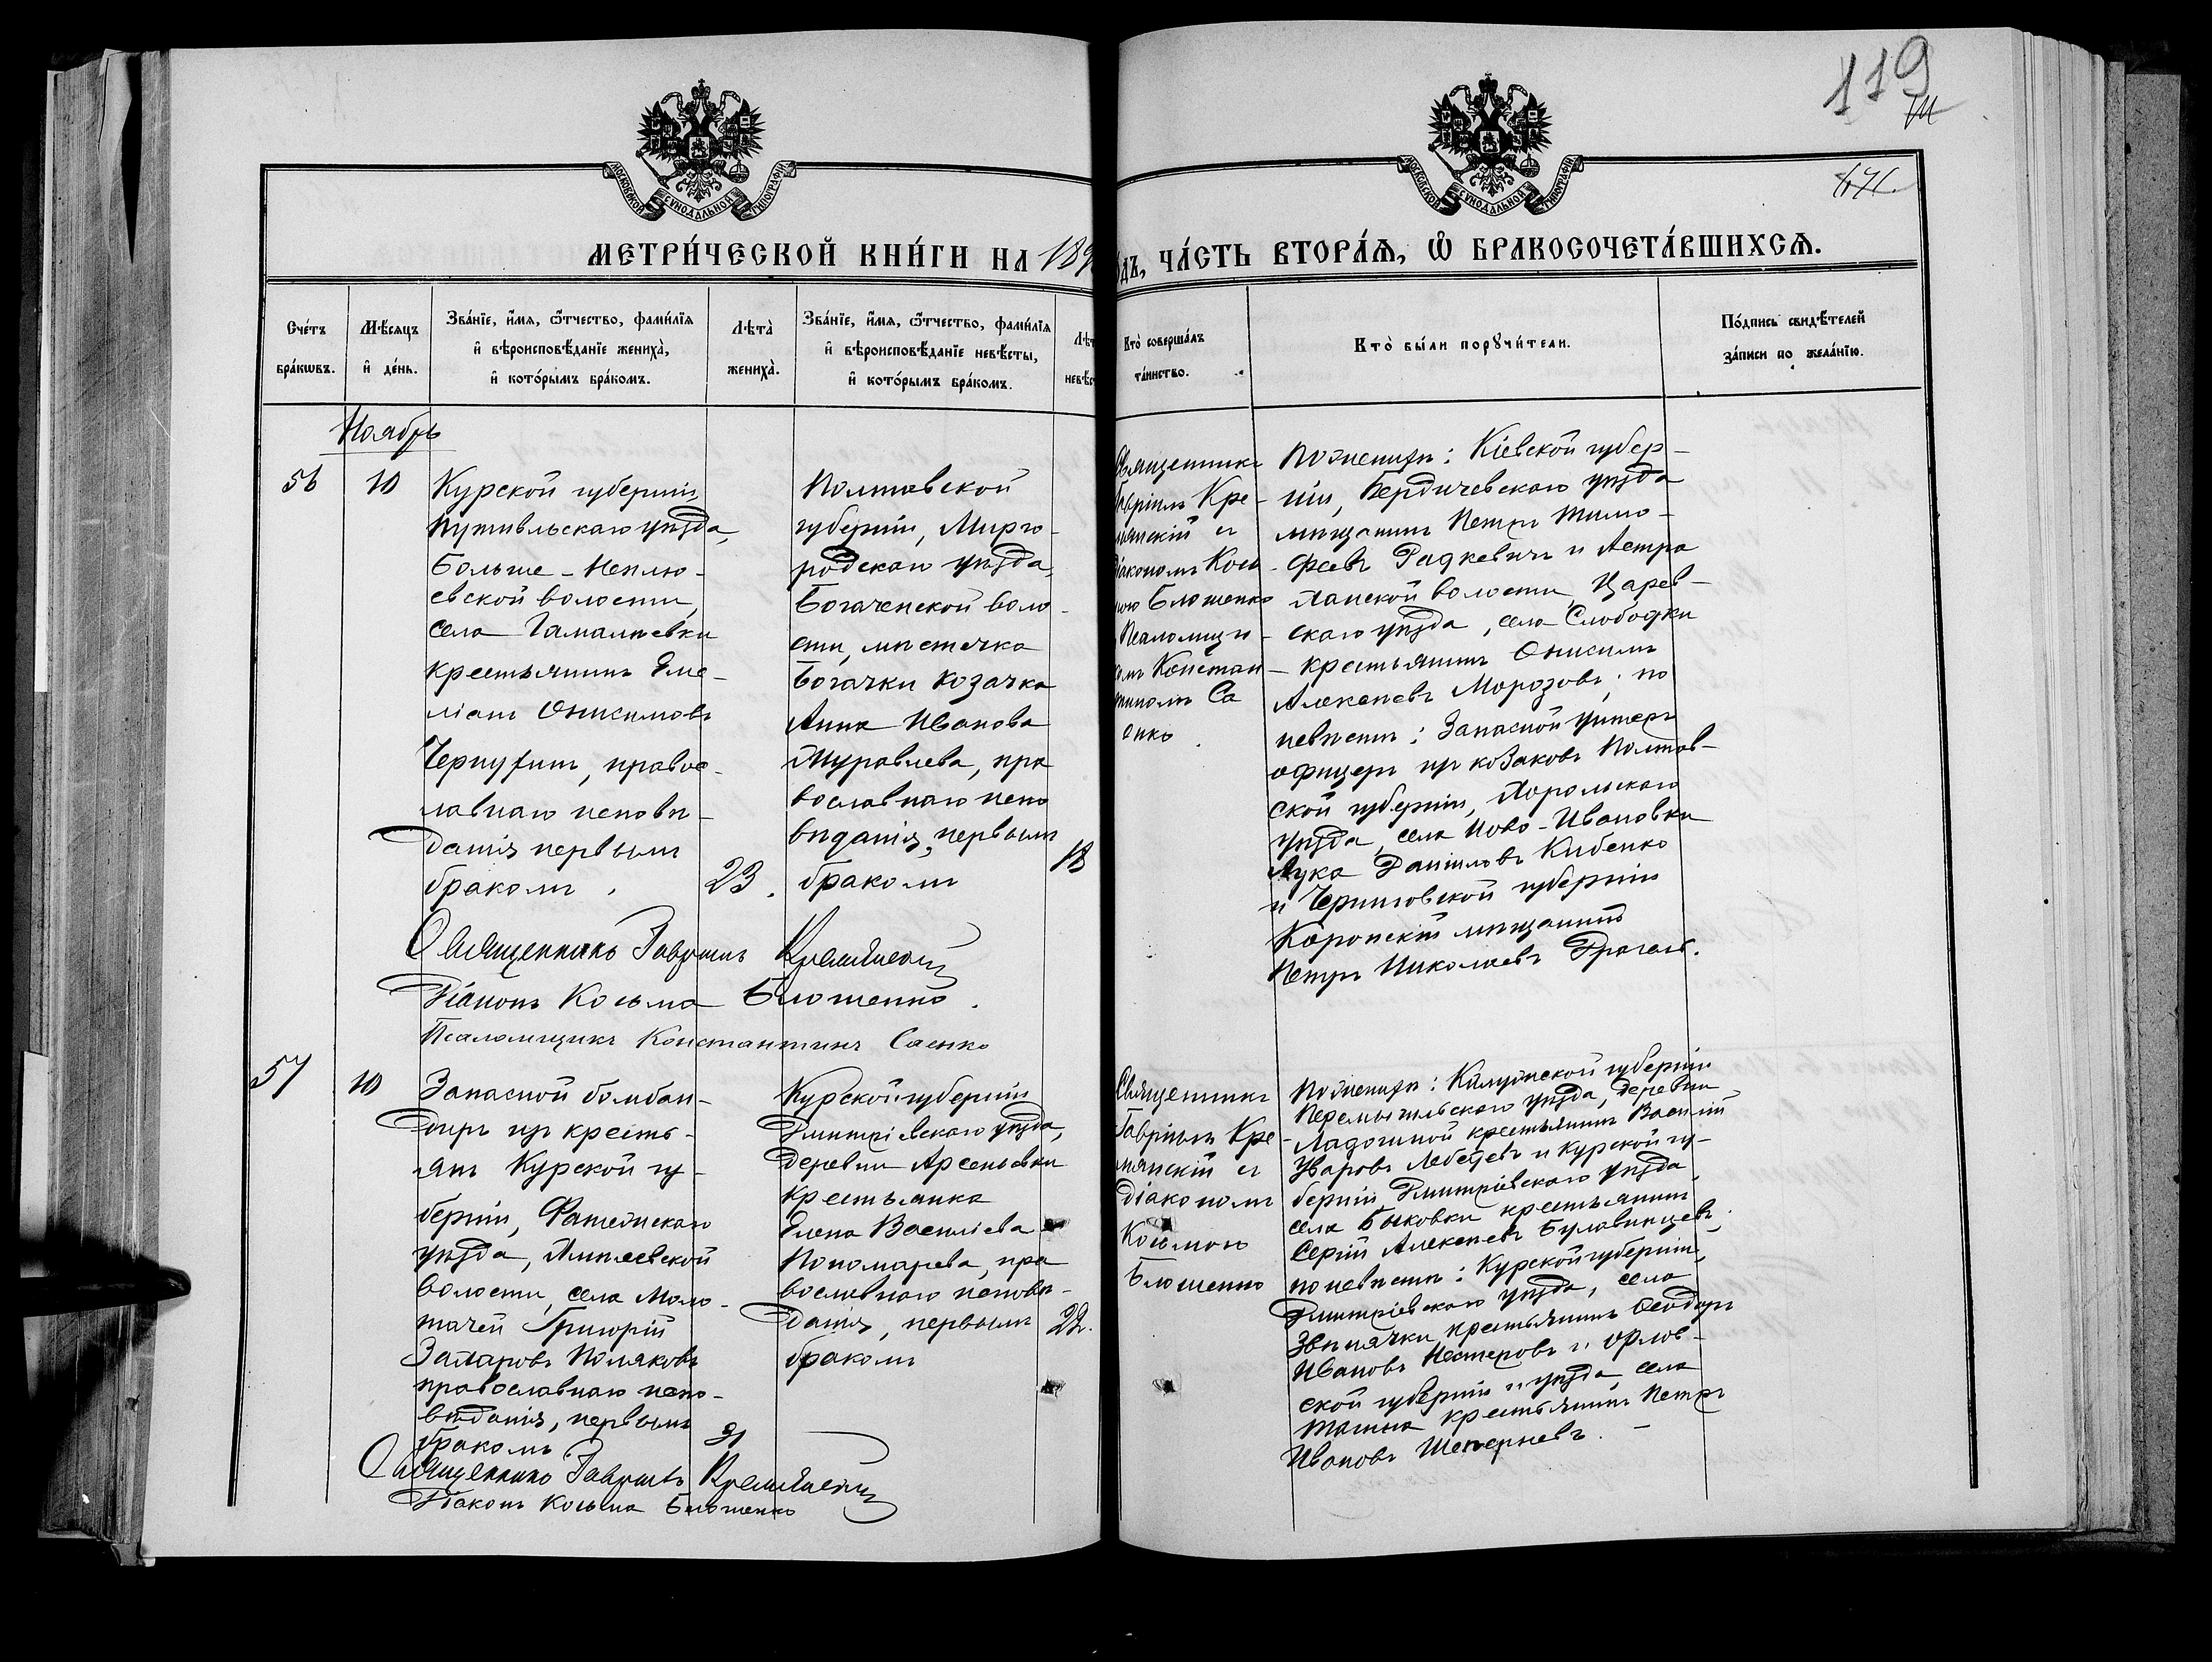 119
МОСКОВСКОЙ СУНОДАЛЬНОЙ ТИПОГРАФІИ
МОСКОВСКОЙ СУНОДАЛЬНОЙ ТИПОГРАФІИ
МЕТРИ́ЧЕСКОЙ КНИ́ГИ НА 189
ДЪ, ЧА́СТЬ ВТОРА́Ѧ, Ѡ҆ БРАКОСОЧЕТА́ВШИХСѦ.
Сче́тъ бра́кѡвъ.
Мѣ́сяцъ и҆ де́нь.
Зва́нїе, и҆́мя, ѻ҆́тчество, фами́лїя
и҆ вѣроисповѣ́данїе жениха̀,
и҆ кото́рымъ бра́комъ.
Лѣта̀ жениха̀.
Зва́нїе, и҆́мя, ѻ҆́тчество, фами́лїя
и҆ вѣроисповѣ́данїе невѣ́сты,
и҆ кото́рымъ бра́комъ.
Кто̀ соверша́лъ
та́инство.
Кто̀ бы́ли порꙋчи́тели.
По́дпись свидѣ́телей
за́писи по жела́нїю.
Ноябрь
56
10
Курской губерніи,
Путивльскаго уѣзда,
Больше-Неплю-
евской волости,
села Гамалѣевки
крестьянинъ Еме-
ліанъ Онисимовъ
православнаго исповѣ-
данія первымъ
бракомъ.
23.
Полтавской
губерніи, Мирго-
родскаго уѣзда,
Богаческой воло-
сти, мѣстечка
Богачки козачка
Анна Иванова
Журавлева, пра
вославнаго испо
вѣданія, первымъ
бракомъ
18
Священникъ
Гавріилъ Кре-
мянскій съ
діакономъ Кось-
мою Блошенко
Псаломщи-
комъ Констан-
тиномъ Са
енко.
По женихѣ: Кіевской губер-
ніи, Бердичевскаго уѣзда
мѣщанинъ Петръ Тимо-
феевъ Радкевичъ и Астра
ханской волости, Царев-
скаго уѣзда, села Слободки
крестьянинъ Онисимъ
Алексѣевъ Морозовъ; по
невѣстѣ: Запасной унтеръ
офицеръ изъ козаковъ Полтав-
ской губерніи, Хорольскаго
уѣзда, села Ново-Ивановки
Лука Даніиловъ Кибенко
и Черниговской губерніи
Коропскій мѣщанинъ
Петръ Николаевъ Драгель.
Священникъ Гавріилъ Кремянскій
Діаконъ Косьма Блошенко.
Псаломщикъ Константинъ Саенко
57
10
Запасной бомбан-
диръ изъ кресть-
янъ Курской гу-
берніи, Фатежскаго
уѣзда, волости, села Моло-
тачей Григорій
Захаровъ Поляковъ
православнаго испо-
вѣданія, первымъ
бракомъ
31
Курской губерніи
Дмитріевскаго уѣзда,
деревни Арсеньевки
крестьянка
Елена Васильева
Пономарева, пра
вославнаго исповѣ-
данія, первымъ
бракомъ
22.
Священникъ
Гавріилъ Кре-
мянскій съ
діакономъ
Косьмою
Блошенко
По женихѣ: Калужской губерніи
Перемышльскаго уѣзда, деревни
Ладогиной крестьянинъ Василій
Уваровъ Лебедевъ и Курской гу-
берніи Дмитріевскаго уѣзда,
села Быковки крестьянинъ
Сергій Алексѣевъ Булавинцевъ;
по невѣстѣ: Курской губерніи,
Дмитріевскаго уѣзда, села
Звѣнячки крестьянинъ Ѳеодоръ
Ивановъ Нестеровъ и Орлов-
ской губерніи и уѣзда, села
крестьянинъ Петръ
Ивановъ
Священникъ Гавріилъ Кремянскій
Діаконъ Косьма Блошенко